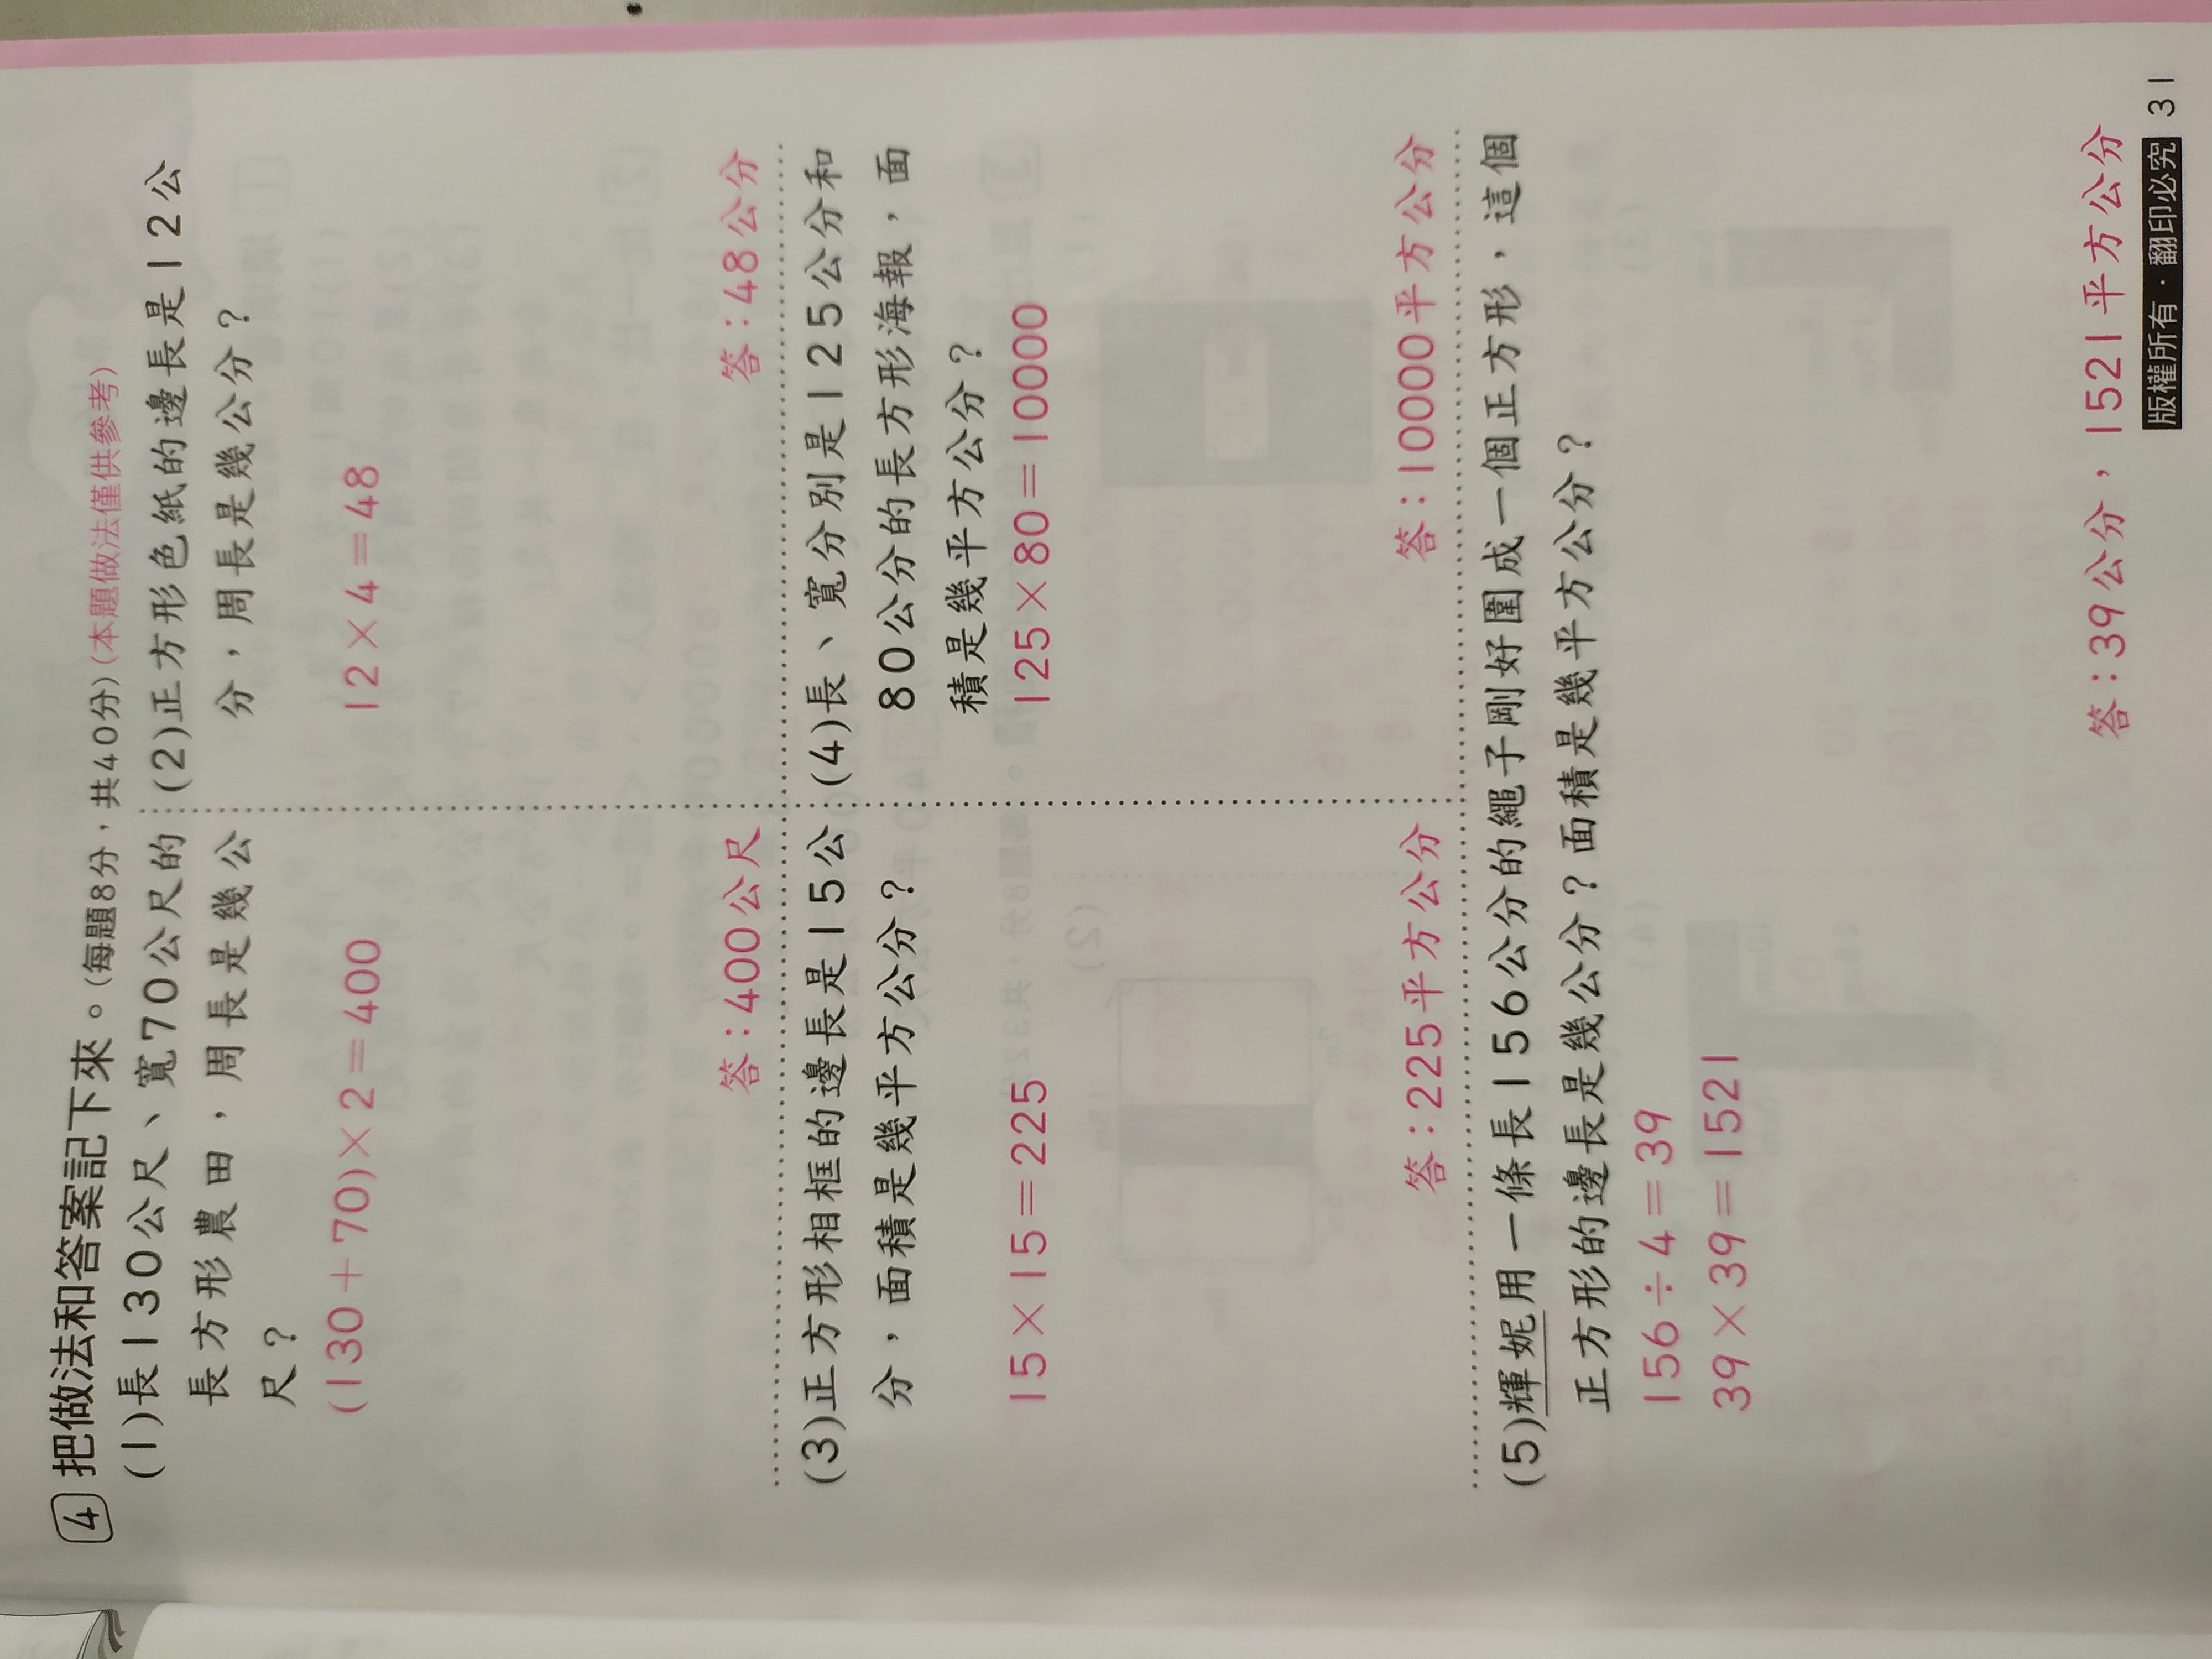 4 把做法和答案記下來。(每題8分,共40分)(本題做法僅供參考)
(1)長130公尺、寬70公尺的
長方形農田,周長是幾公
尺?
(130+70)×2=400
答:400公尺
(2)正方形色紙的邊長是12公
分,周長是幾公分?
12×4=48
答:48公分
(3)正方形相框的邊長是15公
分,面積是幾平方公分?
15×15=225
答:225平方公分
(4)長、寬分別是125公分和
80公分的長方形海報,面
積是幾平方公分?
125×80=10000
答:10000平方公分
(5)輝妮用一條長156公分的繩子剛好圍成一個正方形,這個
正方形的邊長是幾公分?面積是幾平方公分?
156÷4=39
39×39=1521
答:39公分,1521平方公分
版權所有・翻印必究 31